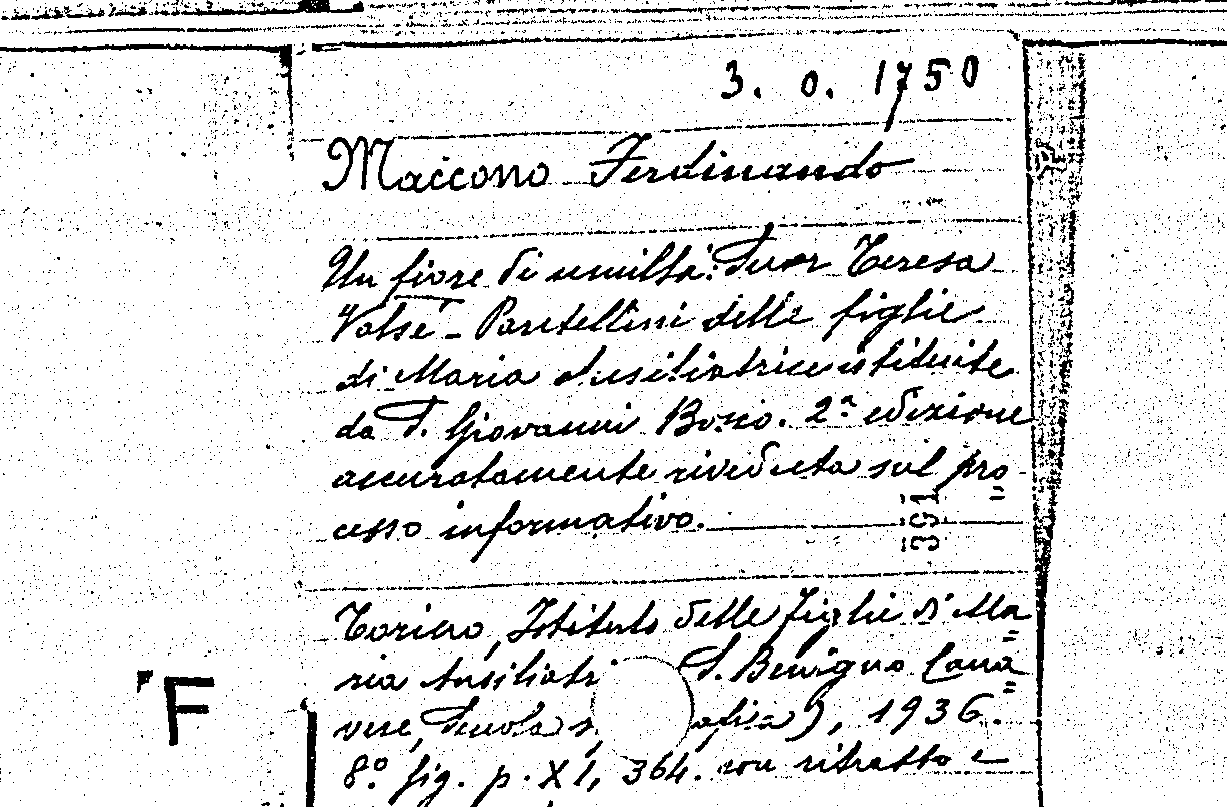 3. 0. 1750
Maccono Ferdinando
Un fiore di umiltà: Suor Teresa
Valsé - Pantellini delle figlie
di Maria Ausiliatrice istituite
da S. Giovanni Bosco. 2ª edizione
accuratamente riveduta sul pro
cesso informativo.
391
Torino, Istituto delle figlie di Ma
ria Ausiliatri S. Benigno Cana
vese, Scuola afica), 1936.
8º fig. p. XI, 364. con ritratto e
F